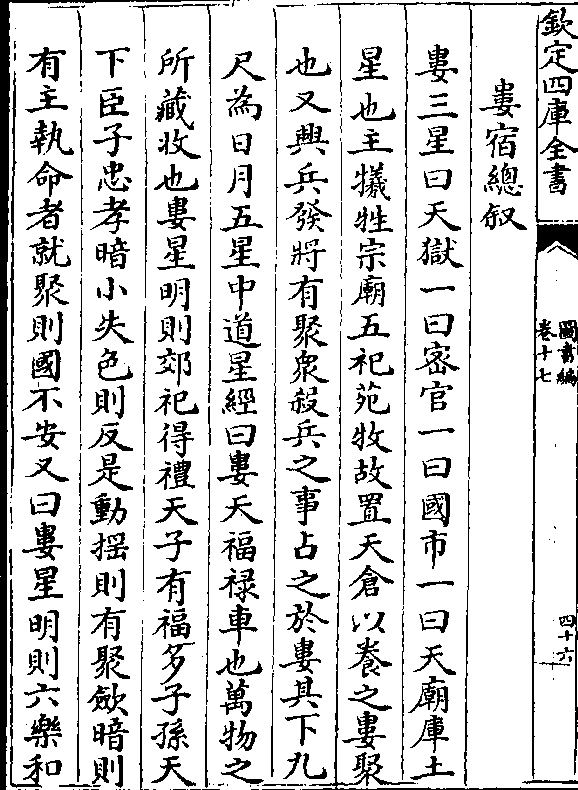 欽定四庫全書
圖書編
卷十七
四十六
婁宿總叙
婁三星曰天獄一曰宻官一曰國市一曰天廟庫土
星也主犧牲宗廟五祀苑牧故置天倉以養之婁聚
也又興兵發將有聚衆殺兵之事占之於婁其下九
尺為日月五星中道星經曰婁天福禄車也萬物之
所藏收也婁星明則郊祀得禮天子有福多子孫天
下臣子忠孝暗小失色則反是動揺則有聚歛暗則
有主執命者就聚則國不安又曰婁星明則六樂和